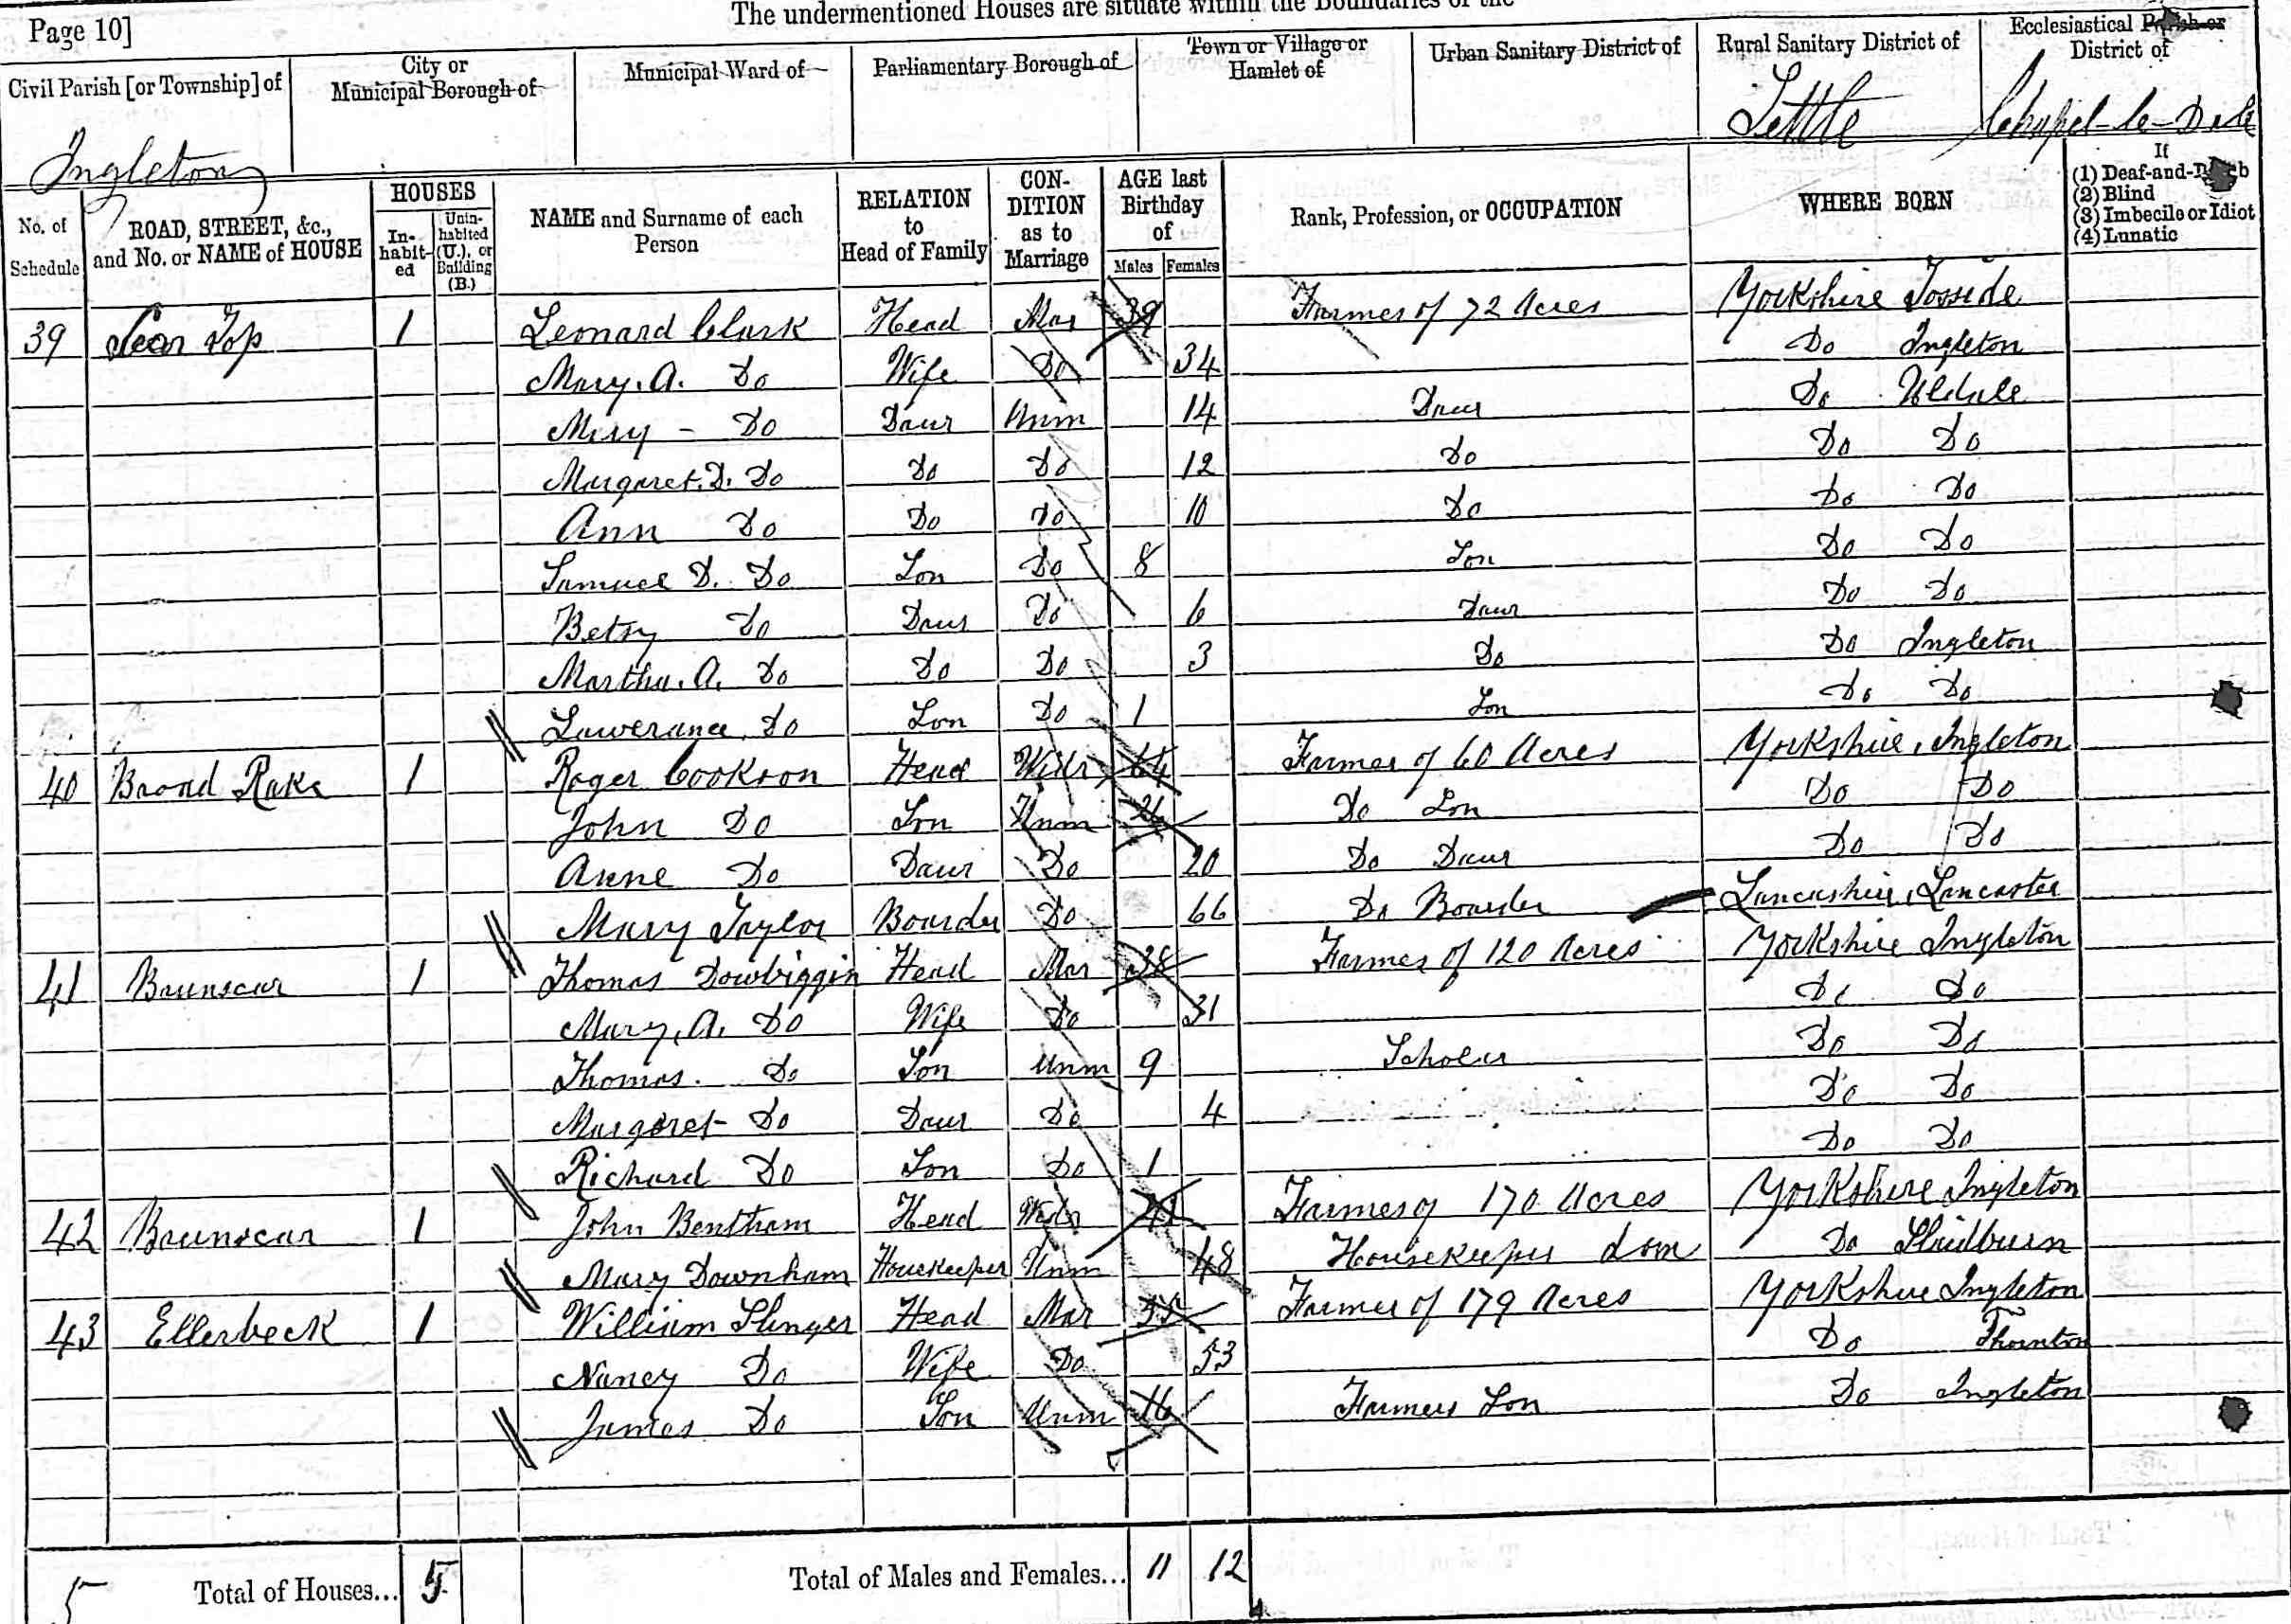 The undermentioned Houses are situate within the Boundaries of the
Page 10]
Civil Parish [or Township] of
City or Municipal Borough of
Municipal Ward of
Parliamentary Borough of
Town or Village or Hamlet of
Urban Sanitary District of
Rural Sanitary District of
Ecclesiastical Parish or District of
Ingleton Settle Chapel-le-Dale
No. of Schedule
ROAD, STREET, &c., and No. or NAME of HOUSE
HOUSES
In-habit-ed
Unin-habited (U.), or Building (B.)
NAME and Surname of each Person
RELATION to Head of Family
CON-DITION as to Marriage
AGE last Birthday of
Males Females
Rank, Profession, or OCCUPATION
WHERE BORN
If
(1) Deaf-and-Dumb
(2) Blind
(3) Imbecile or Idiot
(4) Lunatic
39 Scar Top 1 Leonard Clark Head Mar 39 Farmer of 72 Acres Yorkshire Tosside
Mary. A. Do Wife Do 34 Do Ingleton
Mary - Do Daur Unm 14 Daur Do Uldale
Margaret. D. Do Do Do 12 Do Do Do
Ann Do Do Do 10 Do Do Do
Samuel D. Do Son Do 8 Son Do Do
Betsy Do Daur Do 6 Daur Do Do
Martha. A. Do Do Do 3 Do Do Ingleton
Lawerance Do Son Do 1 Son Do Do
40 Broad Rake 1 Roger Cookson Head Widr 64 Farmer of 60 Acres Yorkshire, Ingleton
John Do Son Unm Do Son Do Do
Anne Do Daur Do 20 Do Daur Do Do
Mary Taylor Boarder Do 66 Do Boarder Lancashire, Lancaster
41 Brunscar 1 Thomas Dowbiggin Head Mar 38 Farmer of 120 Acres Yorkshire Ingleton
Mary, A. Do Wife Do 31 Do Do
Thomas. Do Son Unm 9 Scholar Do Do
Margaret Do Daur Do 4 Do Do
Richard Do Son Do 1 Do Do
42 Brunscar 1 John Bentham Head Widr Farmer of 170 Acres Yorkshire Ingleton
Mary Downham Housekeeper Unm 48 Housekeeper Dom Do Slaidburn
43 Ellerbeck 1 William Slinger Head Mar Farmer of 179 Acres Yorkshire Ingleton
Nancy Do Wife Do 53 Do Thornton
James Do Son Unm 16 Farmers Son Do Ingleton
5 Total of Houses... 5 Total of Males and Females... 11 12